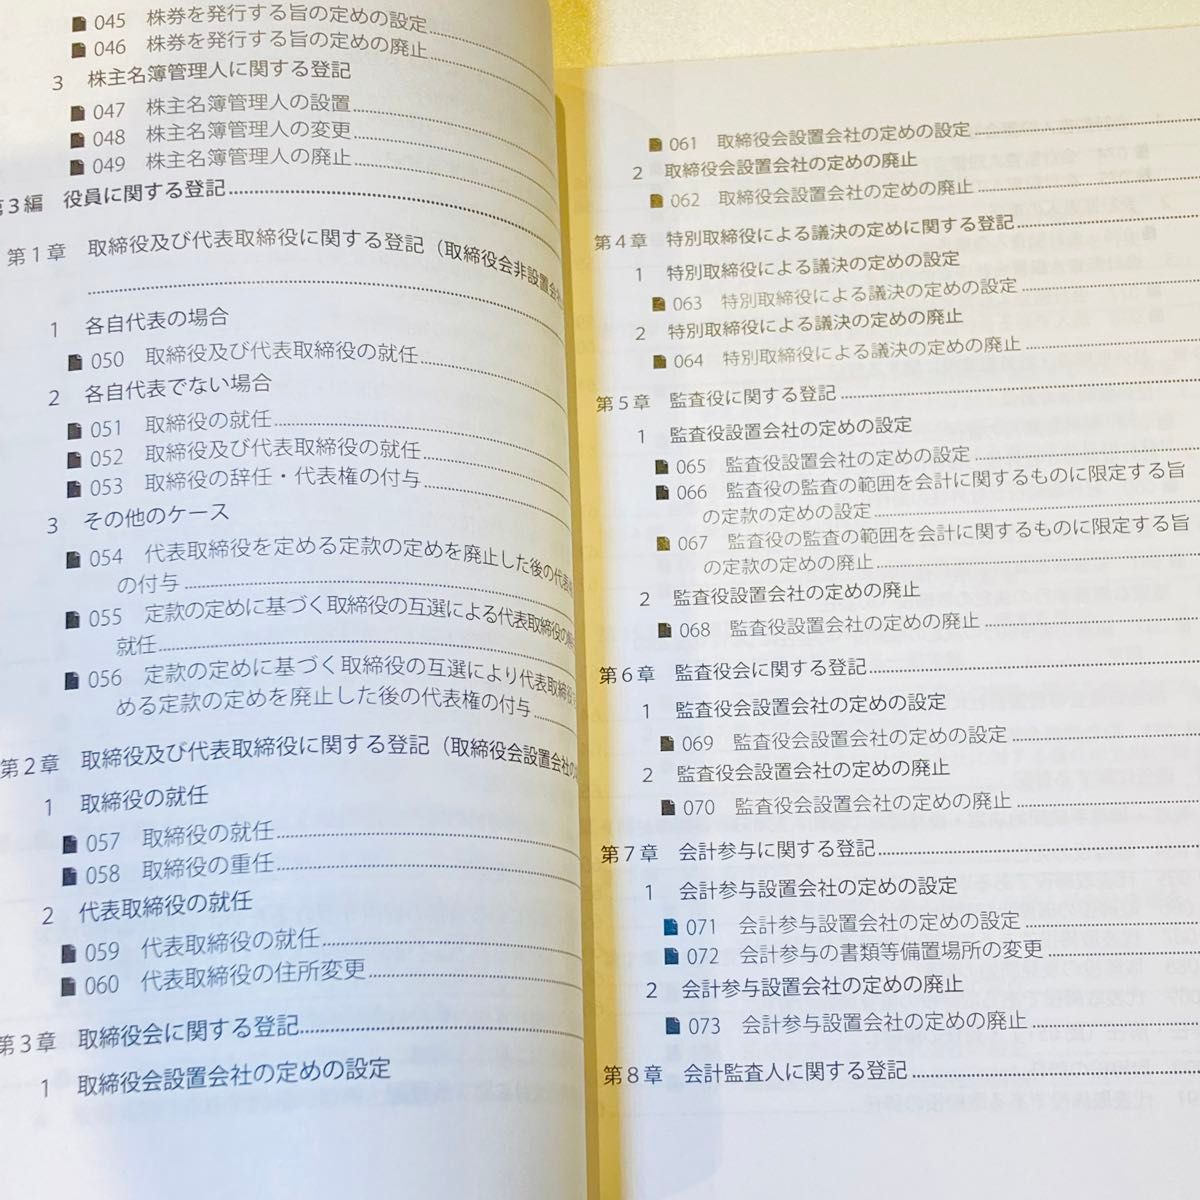 045 株券を発行する旨の定めの設定
046 株券を発行する旨の定めの廃止
3 株主名簿管理人に関する登記
047 株主名簿管理人の設置
048 株主名簿管理人の変更
049 株主名簿管理人の廃止
第3編 役員に関する登記
第1章 取締役及び代表取締役に関する登記（取締役会非設置会社
1 各自代表の場合
050 取締役及び代表取締役の就任
2 各自代表でない場合
051 取締役の就任
052 取締役及び代表取締役の就任
053 取締役の辞任・代表権の付与
3 その他のケース
054 代表取締役を定める定款の定めを廃止した後の代表権
の付与
055 定款の定めに基づく取締役の互選による代表取締役の
就任
056 定款の定めに基づく取締役の互選により代表取締役
める定款の定めを廃止した後の代表権の付与
第2章 取締役及び代表取締役に関する登記（取締役会設置会社の
1 取締役の就任
057 取締役の就任
058 取締役の重任
2 代表取締役の就任
059 代表取締役の就任
060 代表取締役の住所変更
第3章 取締役会に関する登記
1 取締役会設置会社の定めの設定
061 取締役会設置会社の定めの設定
2 取締役会設置会社の定めの廃止
062 取締役会設置会社の定めの廃止
第4章 特別取締役による議決の定めに関する登記
1 特別取締役による議決の定めの設定
063 特別取締役による議決の定めの設定
2 特別取締役による議決の定めの廃止
064 特別取締役による議決の定めの廃止
第5章 監査役に関する登記
1 監査役設置会社の定めの設定
065 監査役設置会社の定めの設定
066 監査役の監査の範囲を会計に関するものに限定する旨
の定款の定めの設定
067 監査役の監査の範囲を会計に関するものに限定する旨
の定款の定めの廃止
2 監査役設置会社の定めの廃止
068 監査役設置会社の定めの廃止
第6章 監査役会に関する登記
1 監査役会設置会社の定めの設定
069 監査役会設置会社の定めの設定
2 監査役会設置会社の定めの廃止
070 監査役会設置会社の定めの廃止
第7章 会計参与に関する登記
1 会計参与設置会社の定めの設定
071 会計参与設置会社の定めの設定
072 会計参与の書類等備置場所の変更
2 会計参与設置会社の定めの廃止
073 会計参与設置会社の定めの廃止
第8章 会計監査人に関する登記